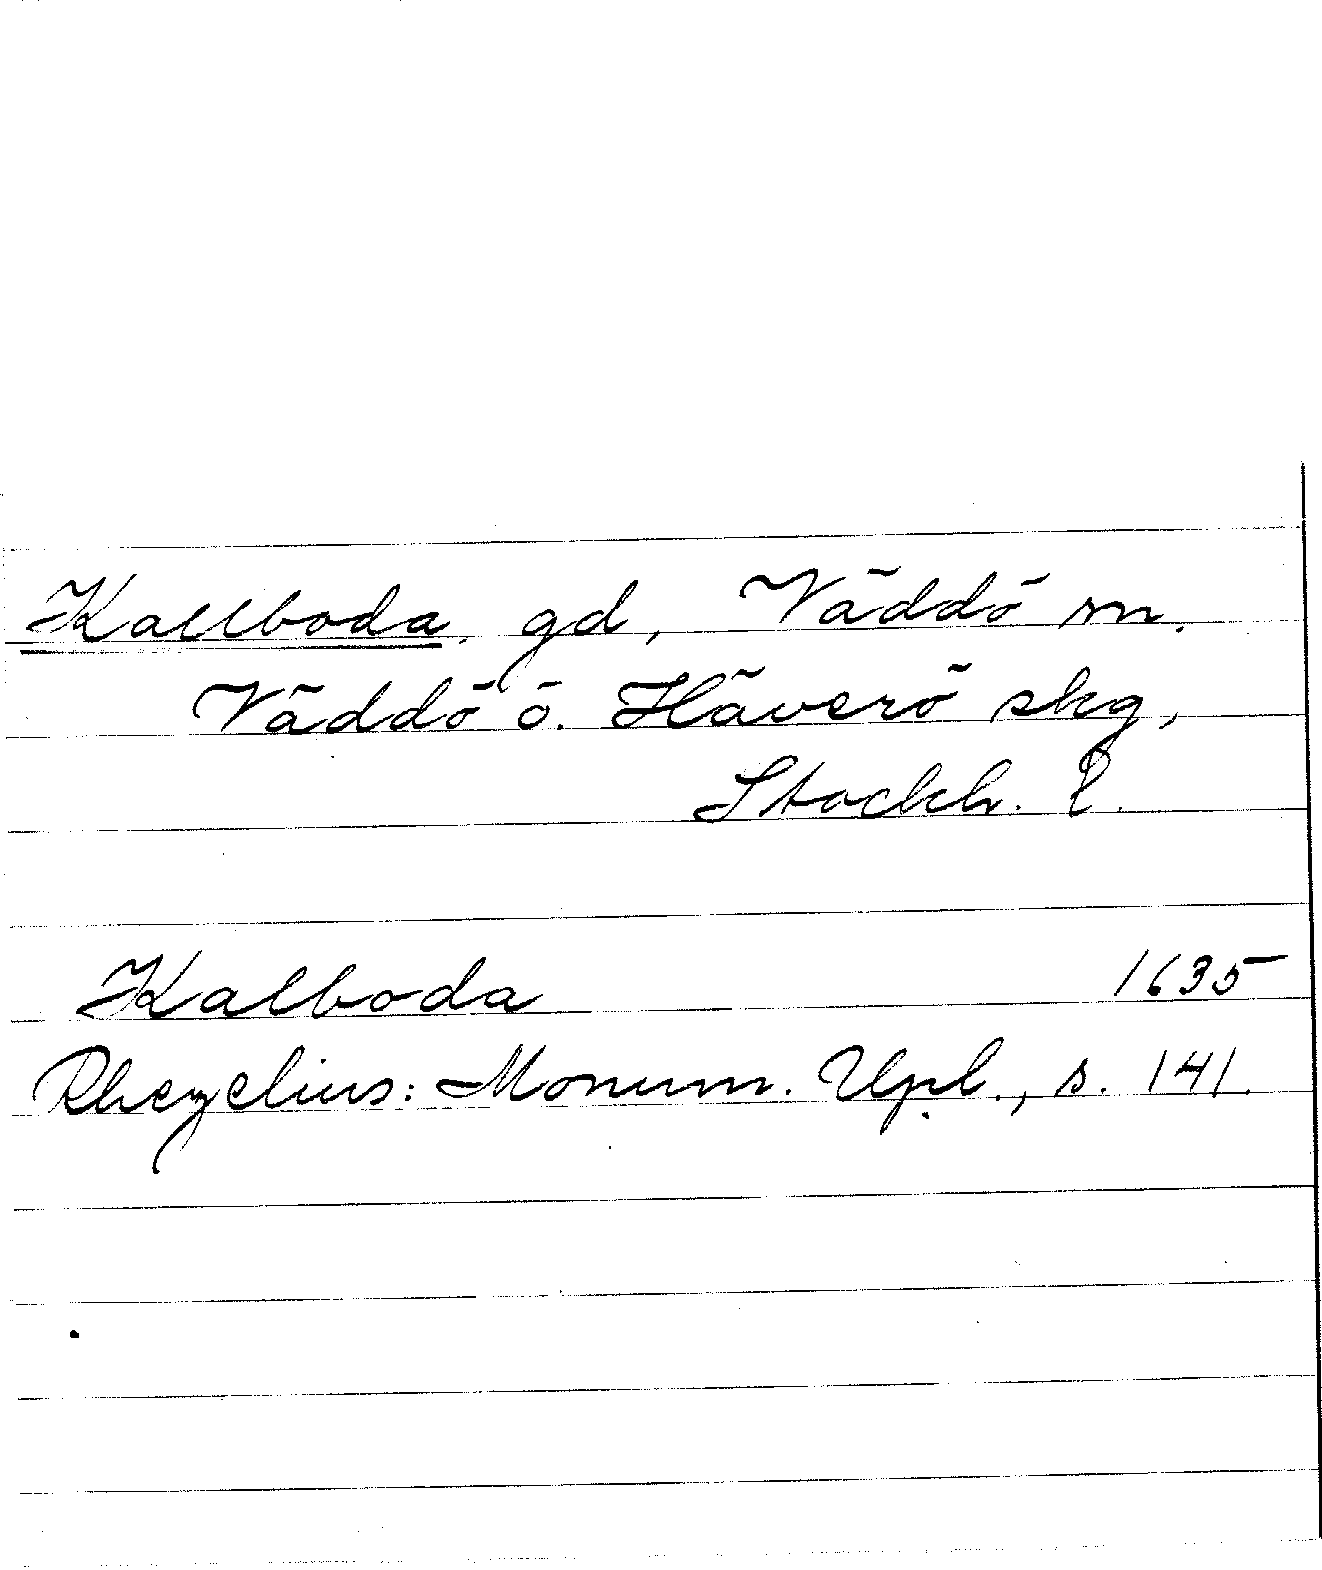 Kallboda. gd, Väddö sn.
Väddö o. Häverö skg,
Stockh. l.
Kalboda 1635
Rhezelius: Monum. Upl., s. 141.